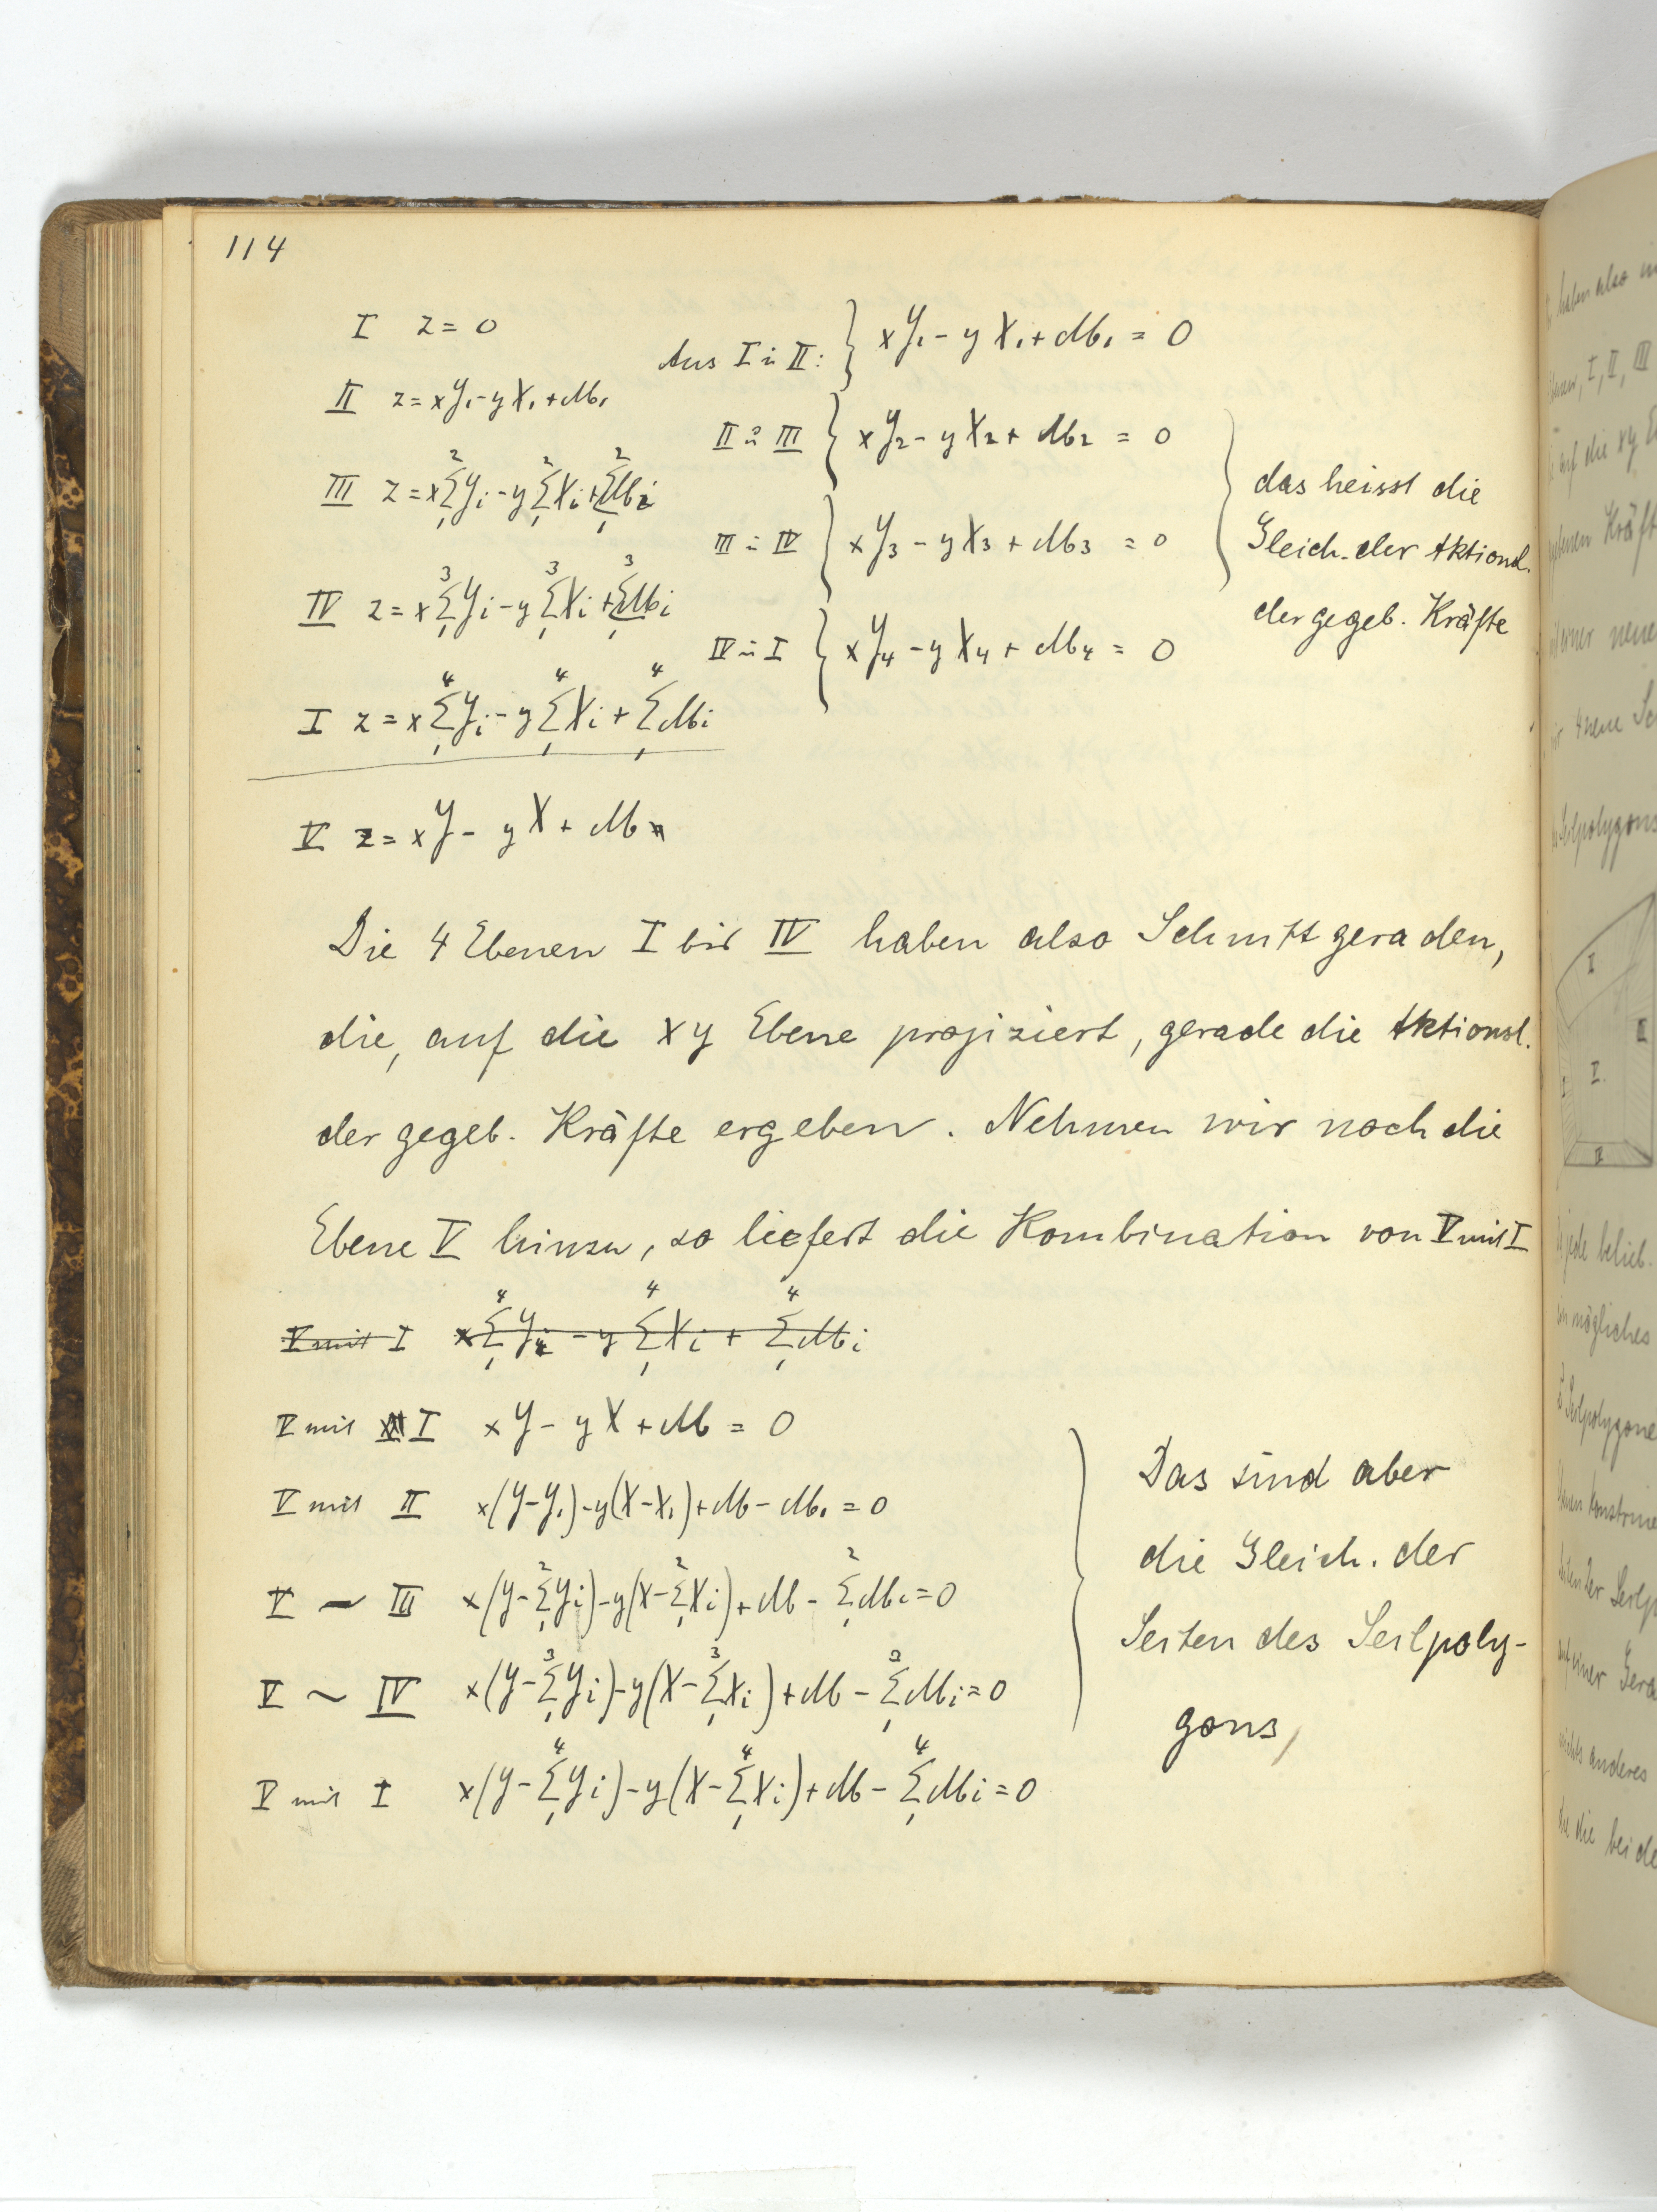 114
I z = 0
II z = xY₁ - yX₁ + M₁
III z = x∑₁²Yi - y∑₁²Xi + ∑₁²Mi
IV z = x∑₁³Yi - y∑₁³Xi + ∑₁³Mi
I z = x∑₁⁴Yi - y∑₁⁴Xi + ∑₁⁴Mi
V z = xY - yX + M
Aus I u II: } xY₁ - yX₁ + M₁ = 0
II u III { xY₂ - yX₂ + M₂ = 0
III u IV } xY₃ - yX₃ + M₃ = 0
IV u I { xY₄ - yX₄ + M₄ = 0
das heisst die
Gleich. der Aktionsl.
der gegeb. Kräfte
Die 4 Ebenen I bis IV haben also Schnittgeraden,
die, auf die xy Ebene projiziert, gerade die Aktionsl.
der gegeb. Kräfte ergeben. Nehmen wir noch die
Ebene V hinzu, so liefert die Kombination von V mit I
V mit I x∑₁⁴Yi - y∑₁⁴Xi + ∑₁⁴Mi
V mit I xY - yX + M = 0
V mit II x(Y-Y₁) - y(X-X₁) + M - M₁ = 0
V ~ III x(Y-∑₁²Yi) - y(X-∑₁²Xi) + M - ∑₁²Mi = 0
V ~ IV x(Y-∑₁³Yi) - y(X-∑₁³Xi) + M - ∑₁³Mi = 0
V mit I x(Y-∑₁⁴Yi) - y(X-∑₁⁴Xi) + M - ∑₁⁴Mi = 0
Das sind aber
die Gleich. der
Seiten des Seilpoly-
gons,
haben also
I, II, III
auf die xy
Kräft
neue
4 neue
Seilpolygons
I
II
I.
II
jede belieb.
mögliches
Seilpolygone
der Seilp
einer Gera
nichts anderes
die die beide